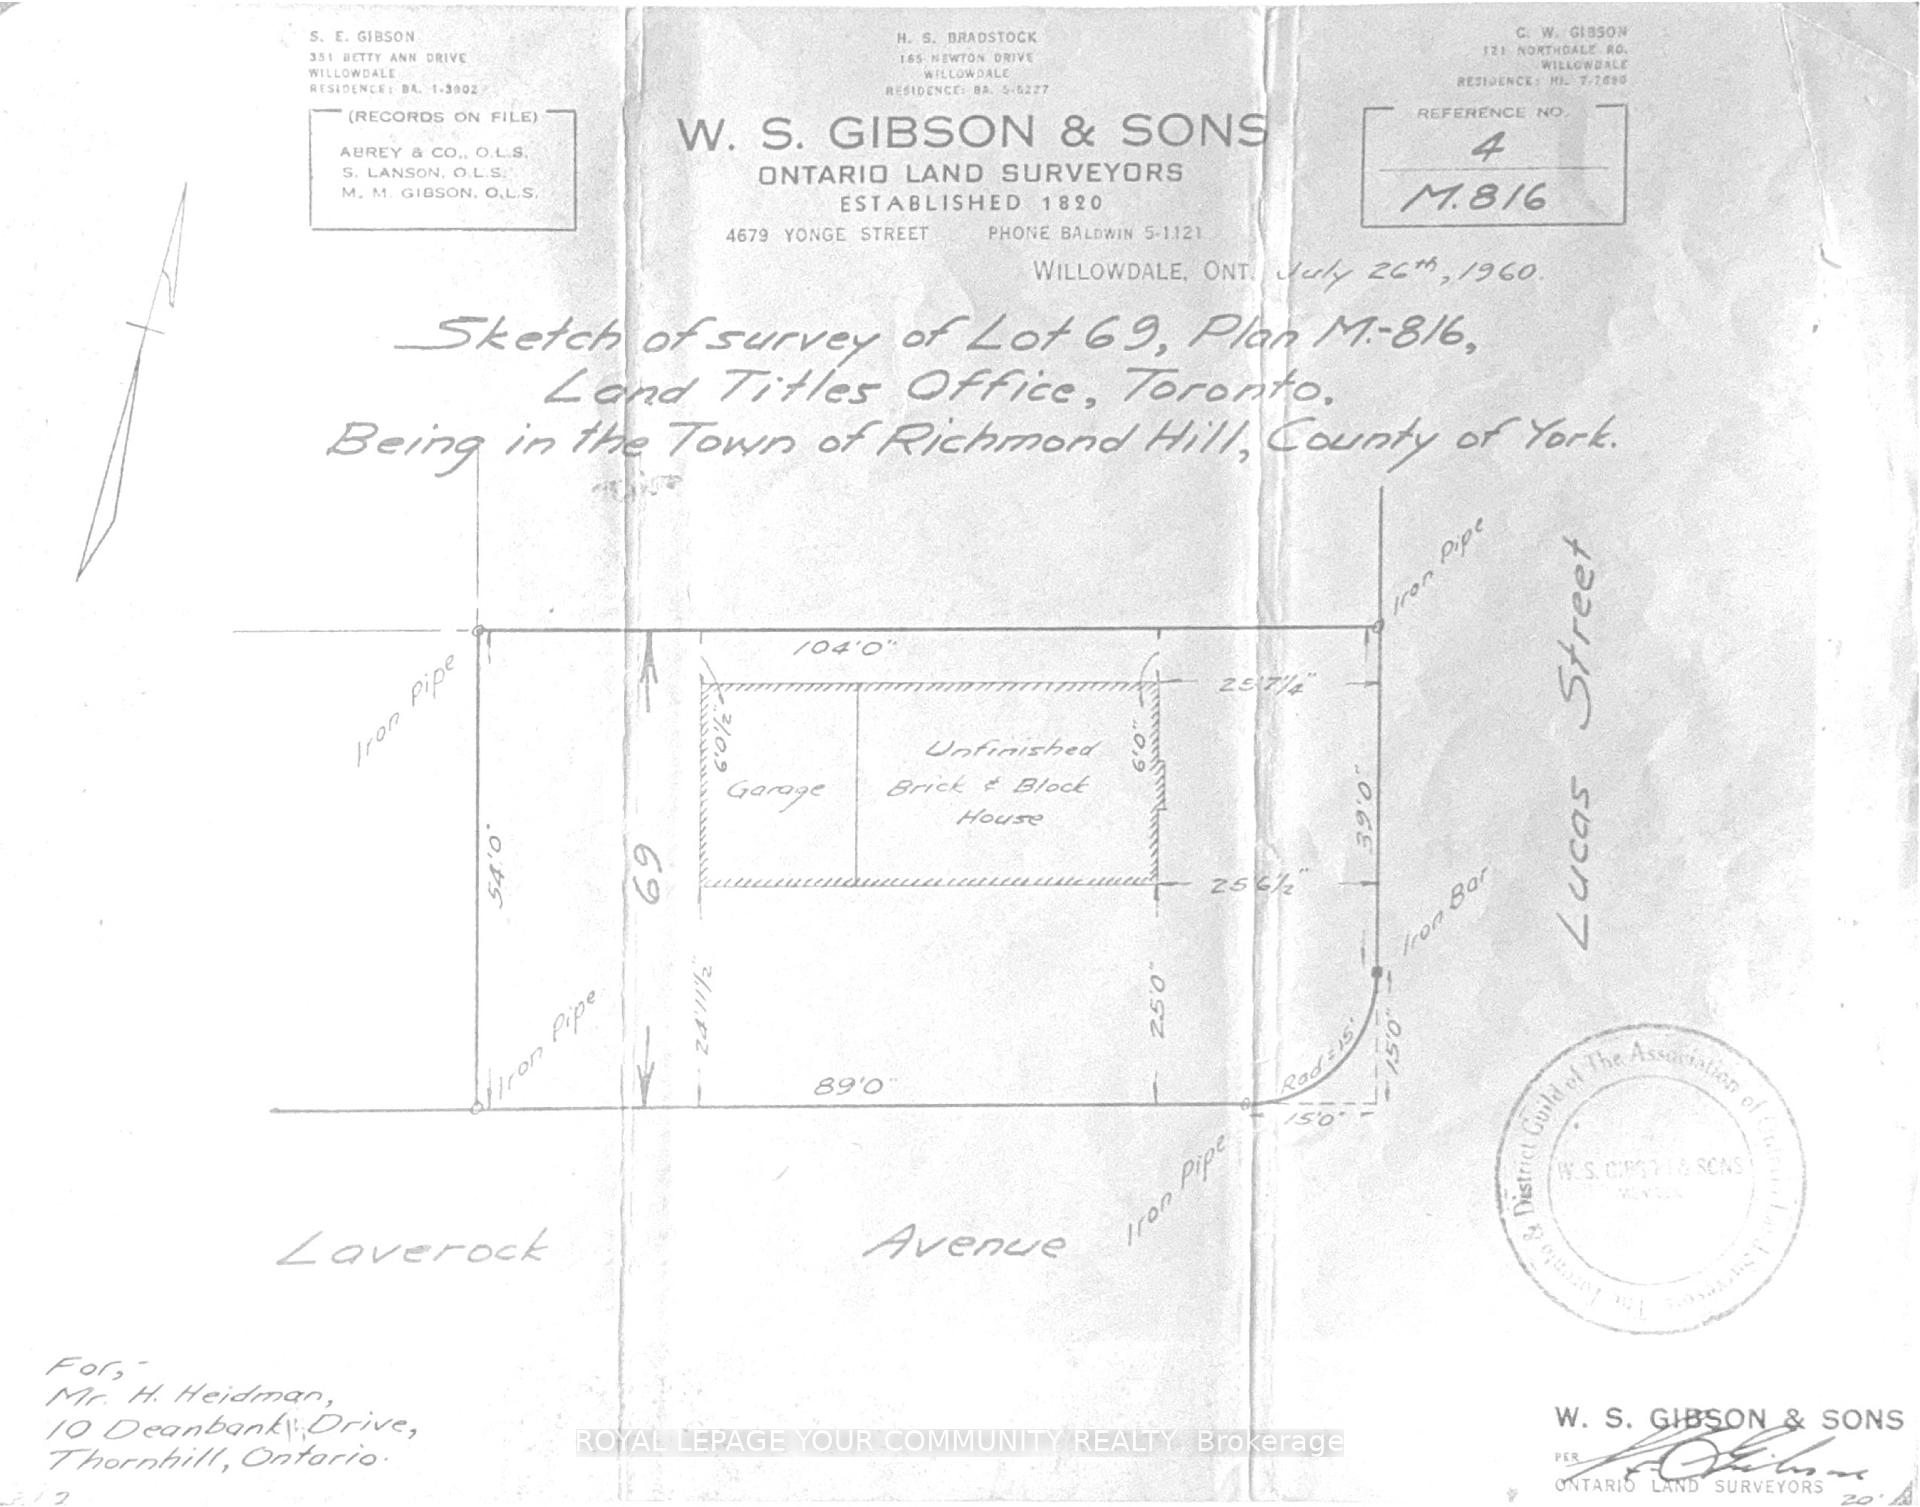 S. E. GIBSON
351 BETTY ANN DRIVE
WILLOWDALE
RESIDENCE: BA. 1-3902
H. S. BRADSTOCK
165 NEWTON DRIVE
WILLOWDALE
RESIDENCE: BA. 5-6227
C. W. GIBSON
121 NORTHDALE RD.
WILLOWDALE
RESIDENCE: HI. 7-7690
(RECORDS ON FILE)
ABREY & CO., O.L.S.
S. LANSON, O.L.S.
M. M. GIBSON, O.L.S.
W. S. GIBSON & SONS
ONTARIO LAND SURVEYORS
ESTABLISHED 1820
4679 YONGE STREET PHONE BALDWIN 5-1121
REFERENCE NO.
4
M.816
WILLOWDALE, ONT. July 26th, 1960.
Sketch of survey of Lot 69, Plan M.-816,
Land Titles Office, Toronto.
Being in the Town of Richmond Hill, County of York.
Iron Pipe
Iron Pipe
104'0"
25'7 1/4"
6'0 1/2"
6'0"
Unfinished
Brick & Block
House
Garage
Lucas Street
54'0"
69
39'0"
25'6 1/2"
Iron Bar
24'11 1/2"
25'0"
Iron Pipe
Rad=15'
15'0"
89'0"
15'0"
Iron Pipe
Laverock Avenue
Toronto & District Guild of The Association of
W. S. GIBSON & SONS
For,-
Mr. H. Heidman,
10 Deanbank Drive,
Thornhill, Ontario.
ROYAL LEPAGE YOUR COMMUNITY REALTY, Brokerage
W. S. GIBSON & SONS
PER
ONTARIO LAND SURVEYORS